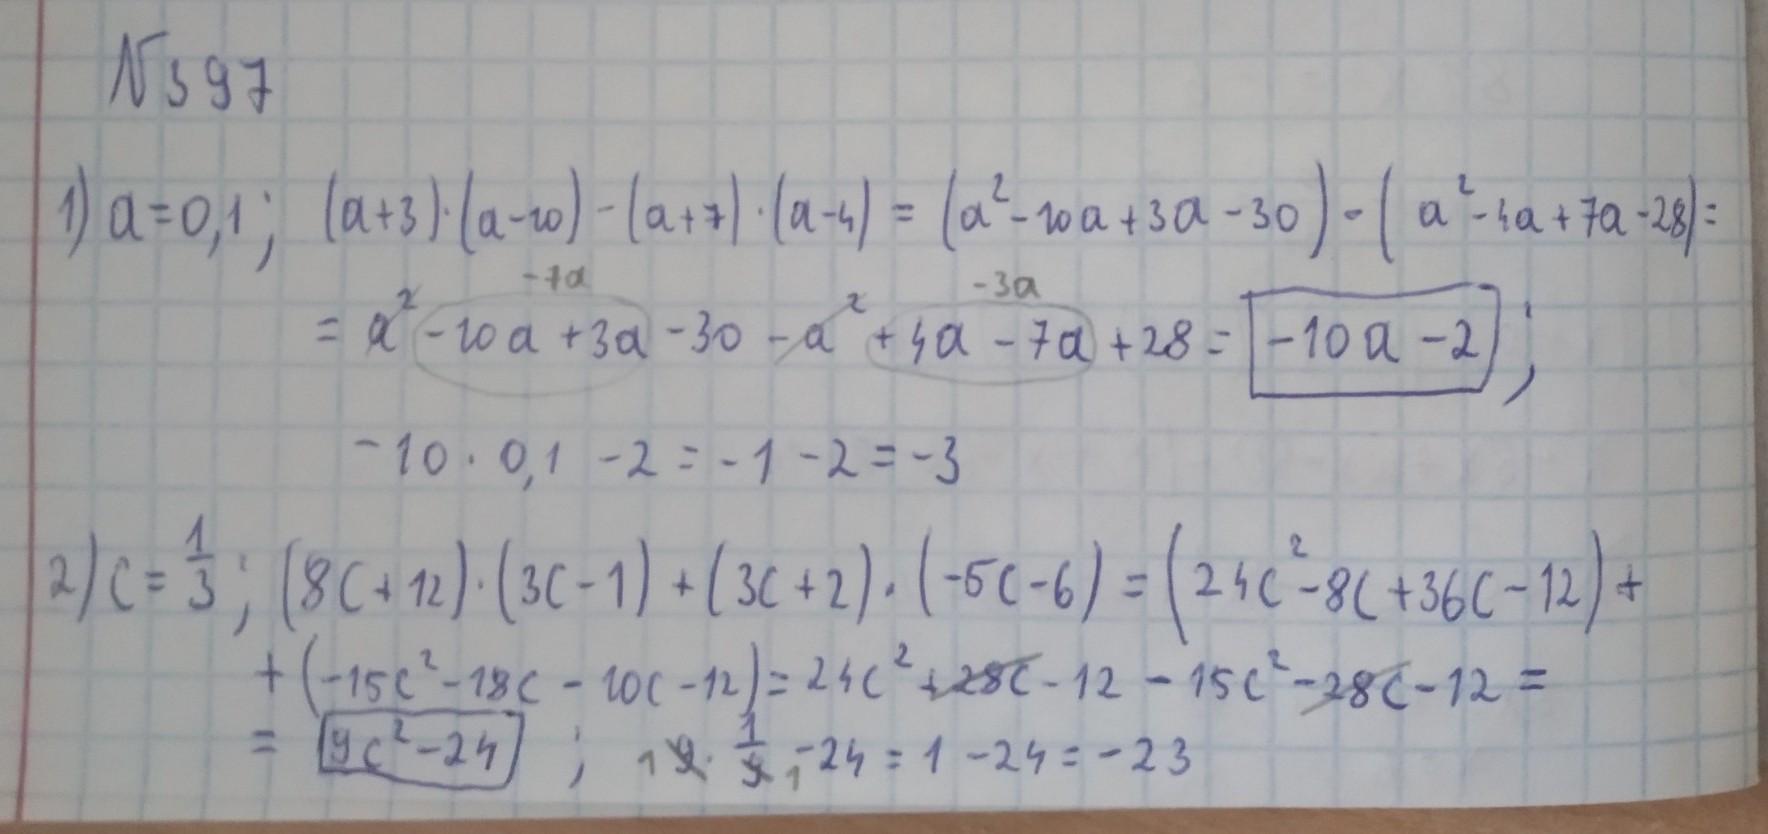 N397
1) a=0,1; (a+3)·(a-10)-(a+7)·(a-4)=(a²-10a+3a-30)-(a²-4a+7a-28)=
-7a -3a
=a²-10a+3a-30-a²+4a-7a+28=-10a-2;
-10·0,1-2=-1-2=-3
2) c=1/3; (8c+12)·(3c-1)+(3c+2)·(-5c-6)=(24c²-8c+36c-12)+
+(-15c²-18c-10c-12)=24c²+28c-12-15c²-28c-12=
=9c²-24; 1 9·1/9 1 -24=1-24=-23